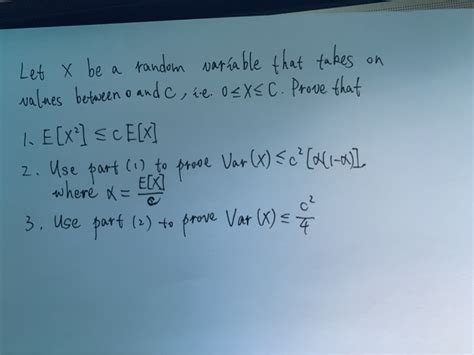 Let X be a random variable that takes on
values between 0 and C, i.e. 0≤X≤C. Prove that
1. E[X²] ≤ c E[X]
2. Use part (1) to prove Var(X) ≤ c²[α(1-α)],
where α = E[X]/c
3. Use part (2) to prove Var(X) ≤ c²/4